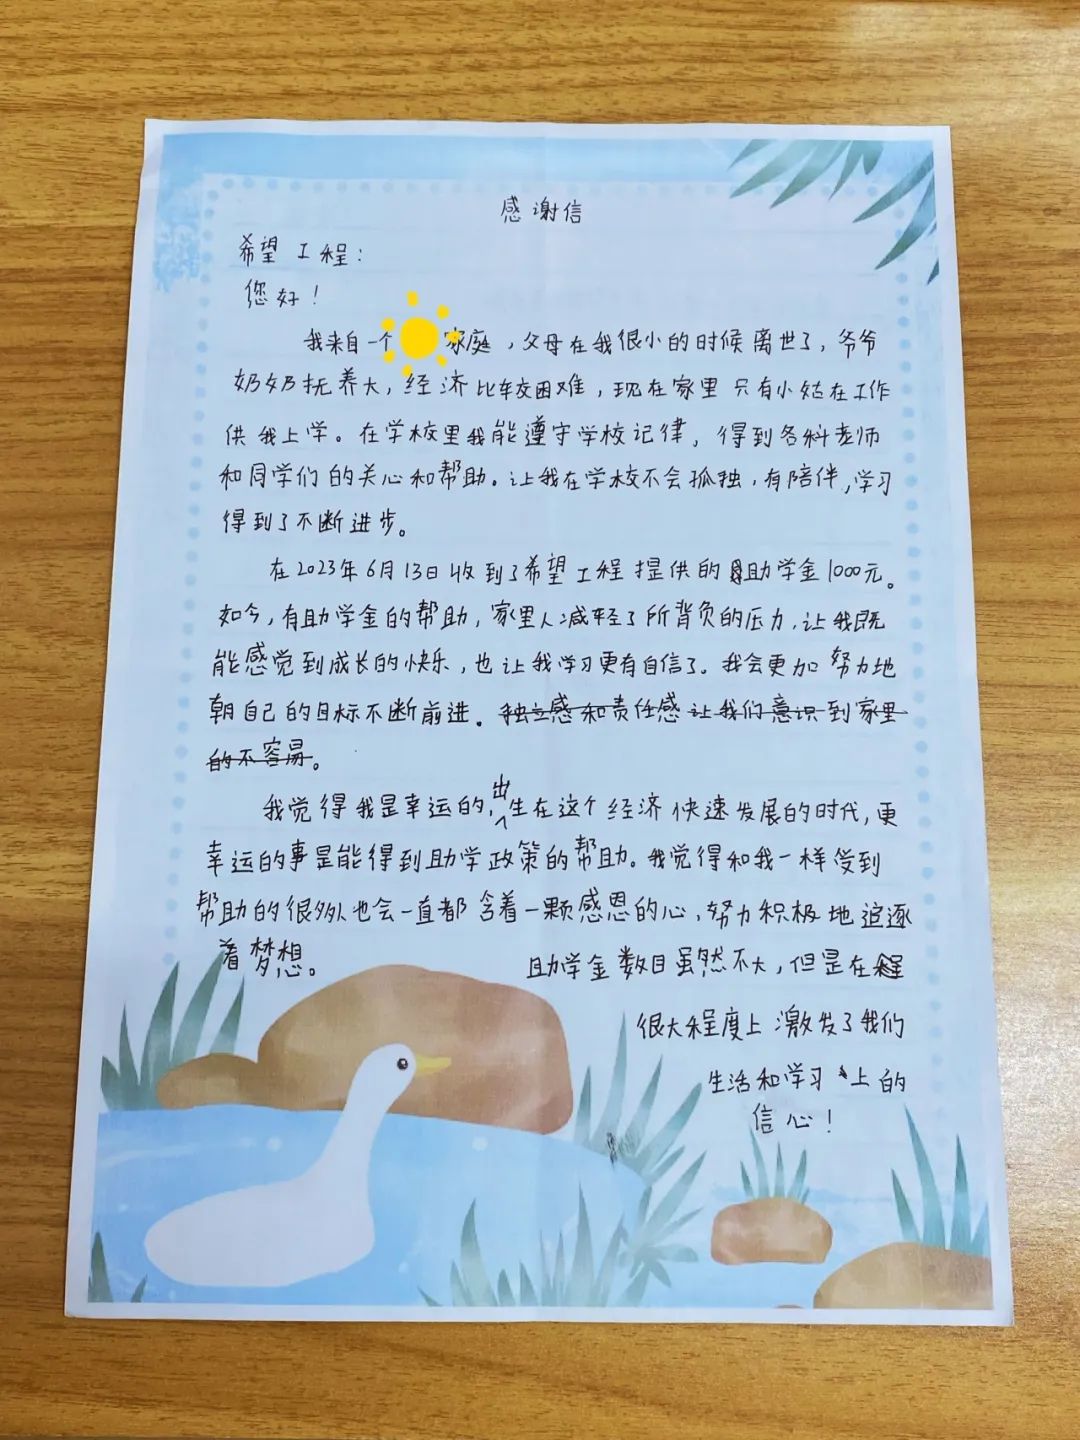 感谢信
希望工程：
您好！
我来自一个家庭，父母在我很小的时候离世了，爷爷
奶奶抚养大，经济比较困难，现在家里只有小姑在工作
供我上学。在学校里我能遵守学校记律，得到各科老师
和同学们的关心和帮助。让我在学校不会孤独，有陪伴，学习
得到了不断进步。
在2023年6月13日收到了希望工程提供的助学金1000元。
如今，有助学金的帮助，家里人减轻了所背负的压力，让我既
能感觉到成长的快乐，也让我学习更有自信了。我会更加努力地
朝自己的目标不断前进。独立感和责任感让我们意识到家里
的不容易。
我觉得我是幸运的，出生在这个经济快速发展的时代，更
幸运的事是能得到助学政策的帮助。我觉得和我一样受到
帮助的很多人也会一直都含着一颗感恩的心，努力积极地追逐
着梦想。
助学金数目虽然不大，但是在
很大程度上激发了我们
生活和学习上的
信心！